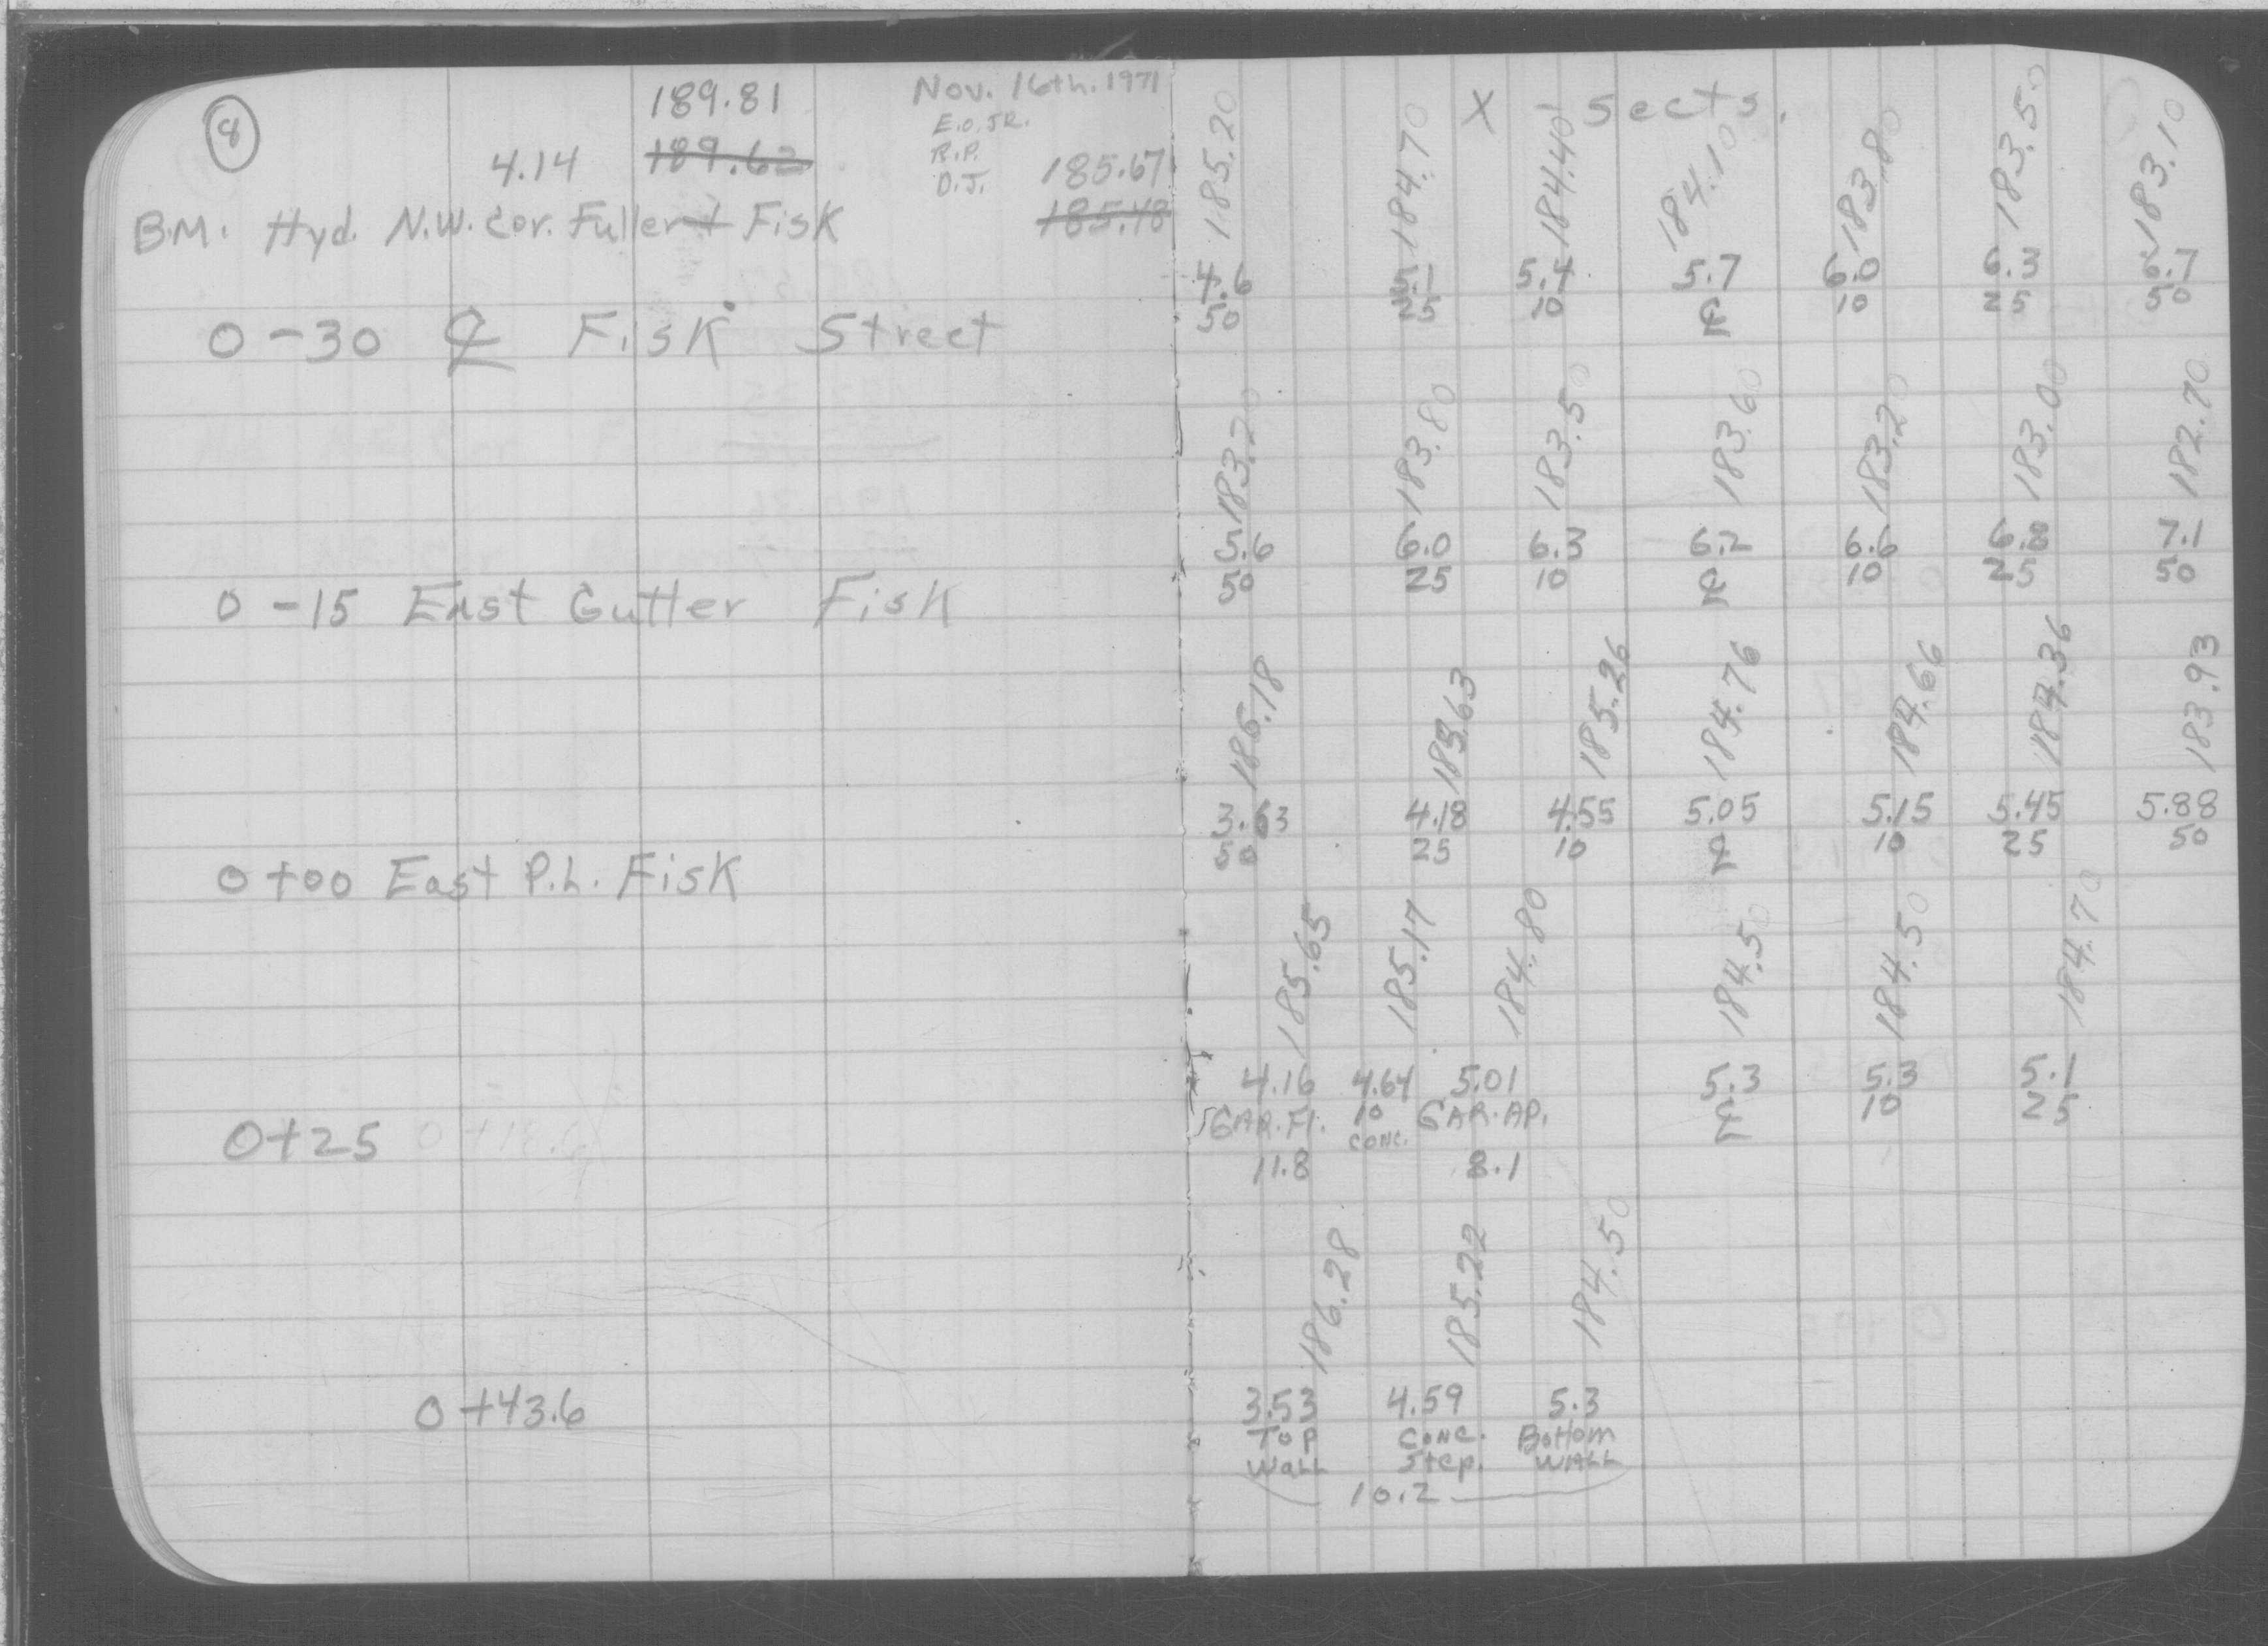 8
189.81
Nov. 16th. 1971
E.O. JR.
R.P.
D.J.
4.14 189.62 185.67
B.M. Hyd. N.W. Cor. Fuller + Fisk 185.48
X - Sects.
185.20 184.70 184.40 184.10 183.80 183.50 183.10
4.6 5.1 5.4 5.7 6.0 6.3 6.7
50 25 10 ℄ 10 25 50
0-30 ℄ Fisk Street
183.20 183.80 183.50 183.60 183.20 183.00 182.70
5.6 6.0 6.3 6.2 6.6 6.8 7.1
50 25 10 ℄ 10 25 50
0-15 East Gutter Fisk
186.18 185.63 185.26 184.76 184.66 184.36 183.93
3.63 4.18 4.55 5.05 5.15 5.45 5.88
50 25 10 ℄ 10 25 50
0+00 East P.L. Fisk
185.65 185.17 184.80 184.50 184.50 184.70
4.16 4.64 5.01 5.3 5.3 5.1
GAR. Fl. 10 GAR. AP. ℄ 10 25
CONC.
11.8 8.1
0+25
186.28 185.22 184.50
3.53 4.59 5.3
TOP CONC. Bottom
WALL Step. WALL
10.2
0+43.6